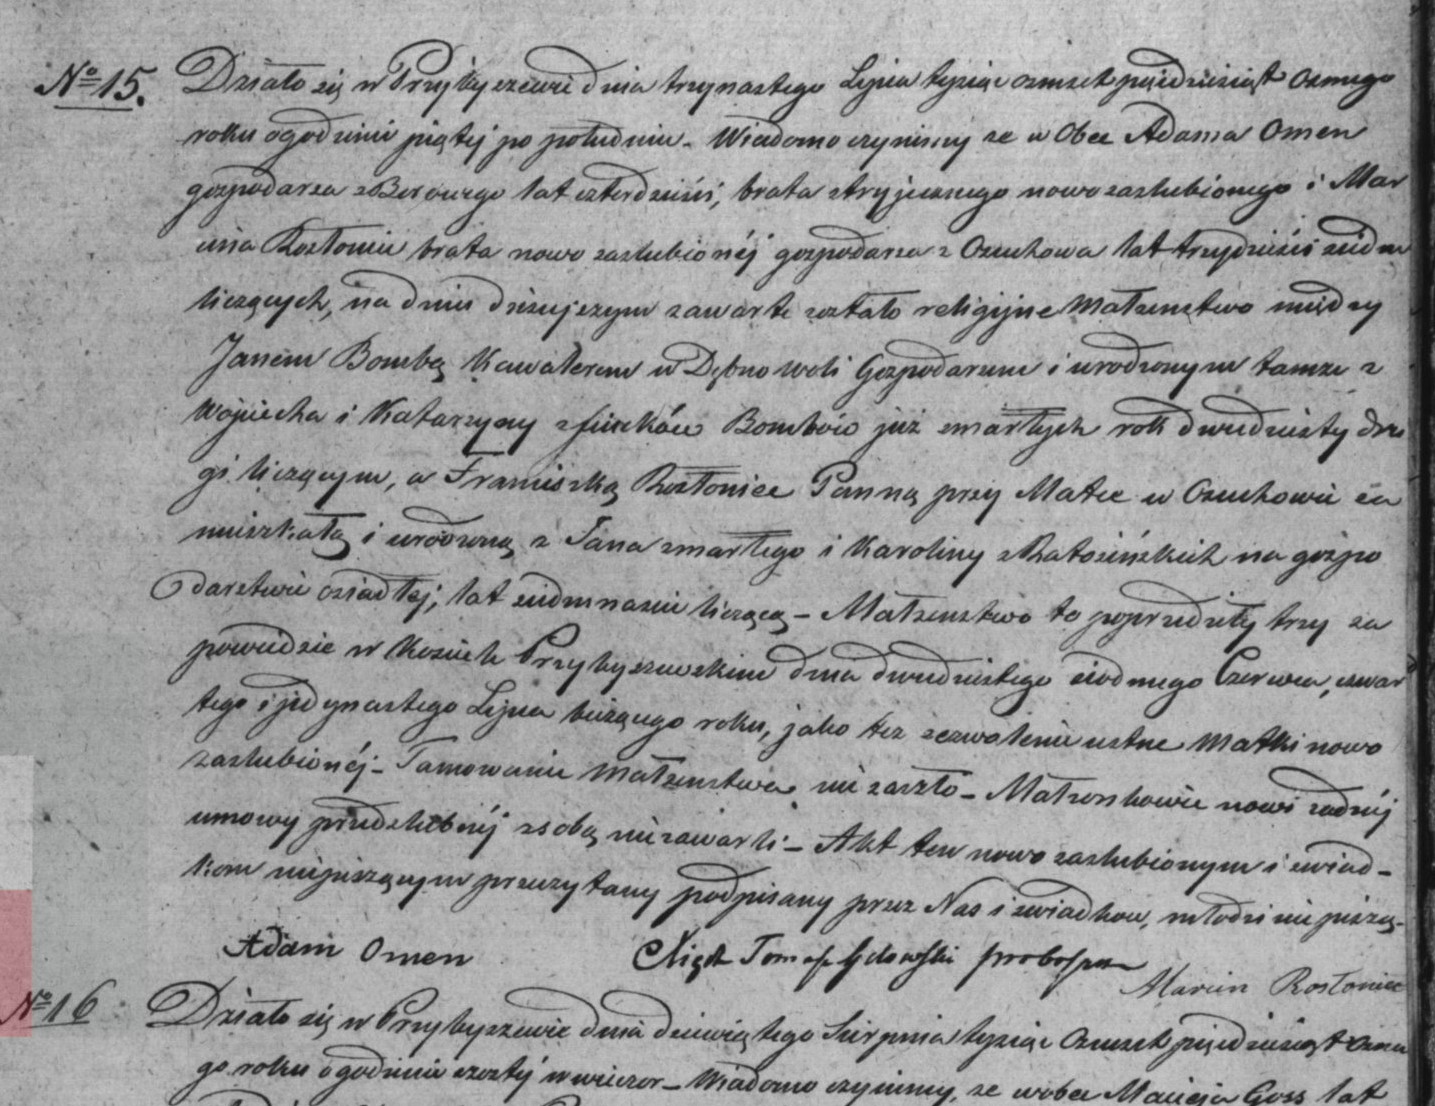 № 15. Działo się w Przybyszewie dnia trzynastego Lipca tysiąc osmset pięćdziesiąt osmego
roku o godzinie piątej po południu. Wiadomo czyniemy ze w Obec Adama Omen
gospodarza z Borowego lat czterdzieści, brata stryjecznego nowo zaslubionego i Mar
cina Rosłoniec brata nowo zaslubionéj gospodarza z Osuchowa lat trzydzieści siedm
liczących, na dniu dzisiejszym zawarte zostało religijne Małzenstwo między
Janem Bombą Kawalerem w Dębnowoli Gospodarzem i urodzonym tamze z
Wojciecha i Katarzyny z Bombów juz zmarłych rok dwudziesty dru
gi liczącym, a Franciszką Rosłoniec Panną przy Matce w Osuchowie za
mieszkałą i urodzoną z Jana zmarłego i Karoliny z Ratosińskich na gospo
darstwie osiadłej, lat siedmnascie liczącą – Małzenstwo to poprzedziły trzy za
powiedzie w Kosciele Przybyszewskim dnia dwudziestego siodmego Czerwca, czwar
tego i jedynastego Lipca biezącego roku, jako tez zezwolenie ustne Matki nowo
zaslubionéj – Tamowanie Małzenstwa nie zaszło – Małzonkowie nowi zadnéj
umowy przedslubnéj z sobą nie zawarli – Akt ten nowo zaslubionym i swiad–
kom niepiszącym przeczytany podpisany przez Nas i swiadkow, młodzi nie piszą.
Adam Omen Xiądz Tomasz Proboszcz
Marcin Rosłoniec
№ 16 Działo się w Przybyszewie dnia dziewiątego Sierpnia tysiąc Osmset pięcdziesiąt osme
go roku o godzinie szostéj wwieczor – Wiadomo czyniemy, ze wobec Macieja Goss lat